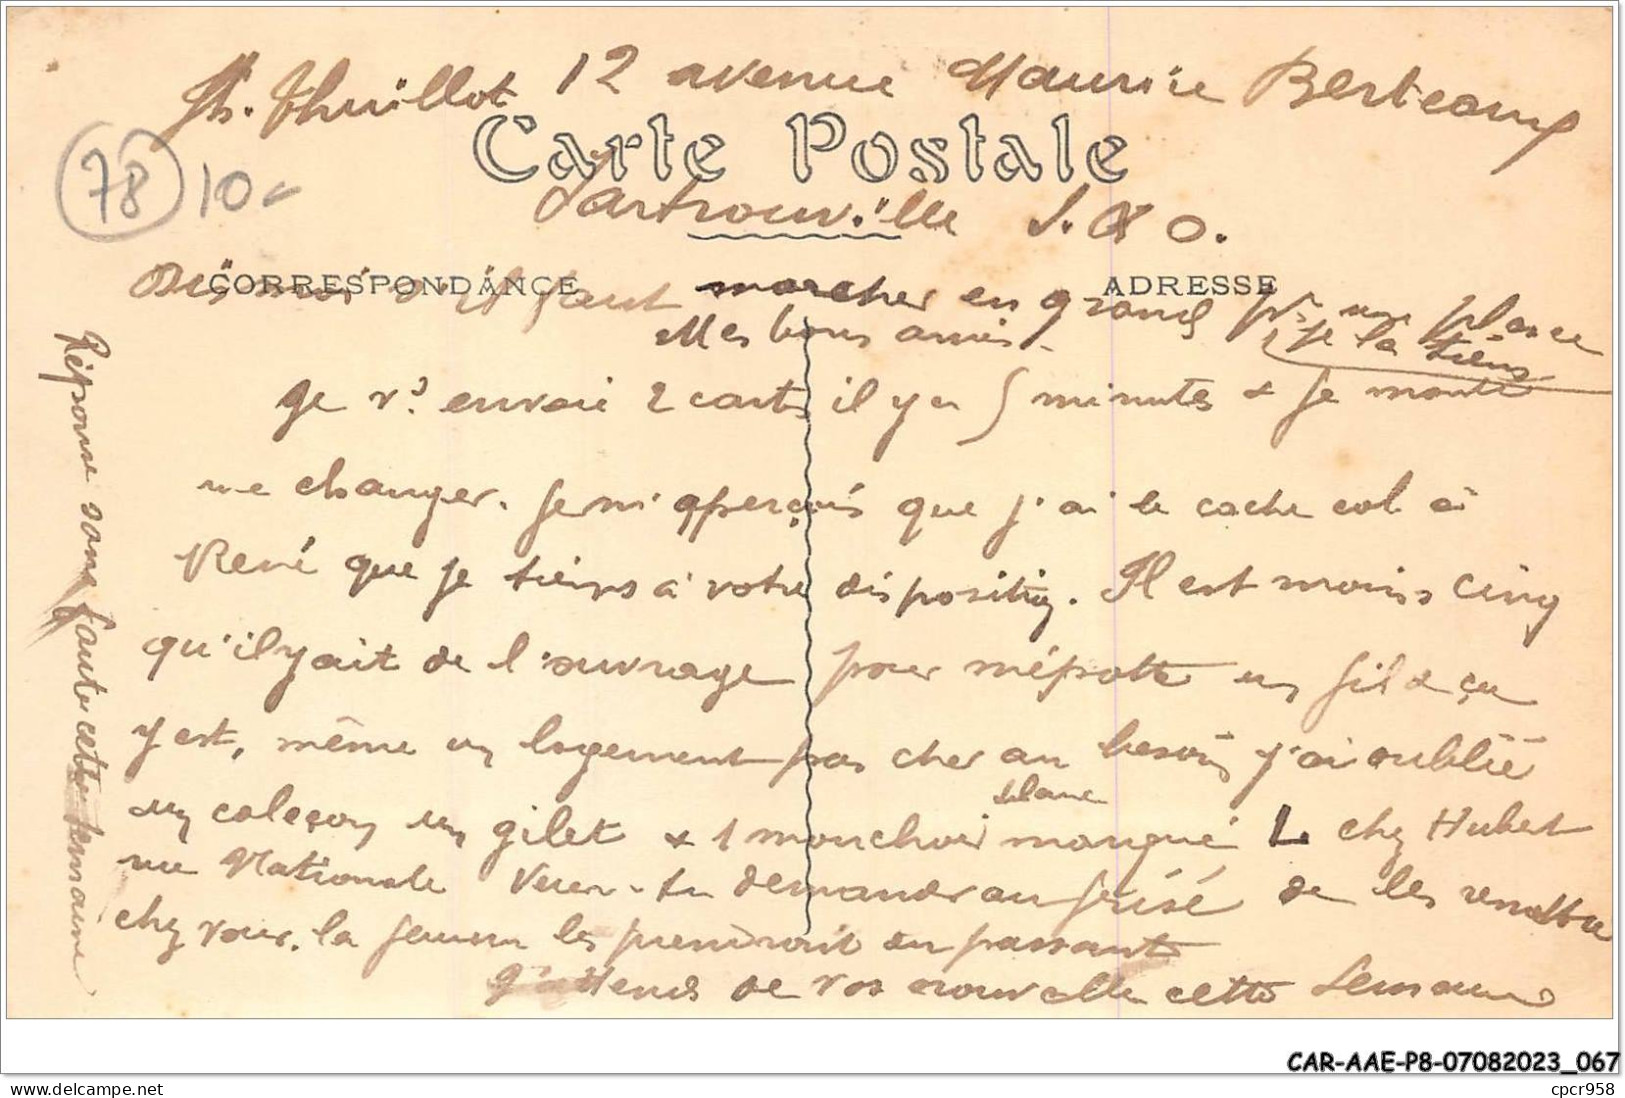 Th. Thuillot 12 avenue Maurice Berteaux
Carte Postale
78 10-
Sartrouville S. & O.
CORRESPONDANCE
ADRESSE
Dis moi s'il faut marcher en grand pr une place
je la tiens
Mes bons amis.
Je vs envoi 2 cartes il y a 5 minutes & je monte
me changer. Je m'aperçois que j'ai le cache col à
René que je tiens à votre disposition. Il est moins cinq
qu'il y ait de l'ouvrage pour mépatte un fil & ça
y est, même un logement pas cher au besoin j'ai oublié
un caleçon un gilet & 1 mouchoir blanc marqué L chez Hubert
rue Nationale Veux-tu demander au frisé de les remettre
chez vous. la femme les prendrait en passant
J'attends de vos nouvelle cette semaine
Réponse sans faute cette semaine
CAR-AAE-P8-07082023_067
www.delcampe.net
cpcr958